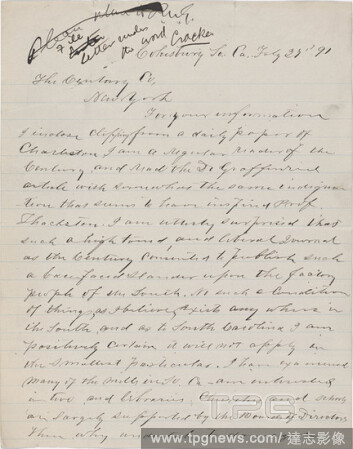 File
letter under
the word Cracker
Cokesbury So. Ca. July 27th 91
The Century Co,
New York
For your information
I inclose clipping from a daily paper of
Charleston. I am a regular reader of the
Century and read the De Graffenried
article with somewhat the same indigna-
tion that seems to have inspired Prof.
Thackston. I am utterly surprised that
such a high toned and liberal Journal
as the Century consented to publish such
a base slander upon the factory
people of the South. No such a Condition
of things, as I believe, exists any where in
the South and as to South Carolina I am
positively certain it will not apply in
the smallest particular. I have examined
many of the mills in So. Ca - am interested
in two and Libraries, Churches and schools
are largely supported by the Board of Directors
Then why
TPG
www.tpgnews.com/達志影像